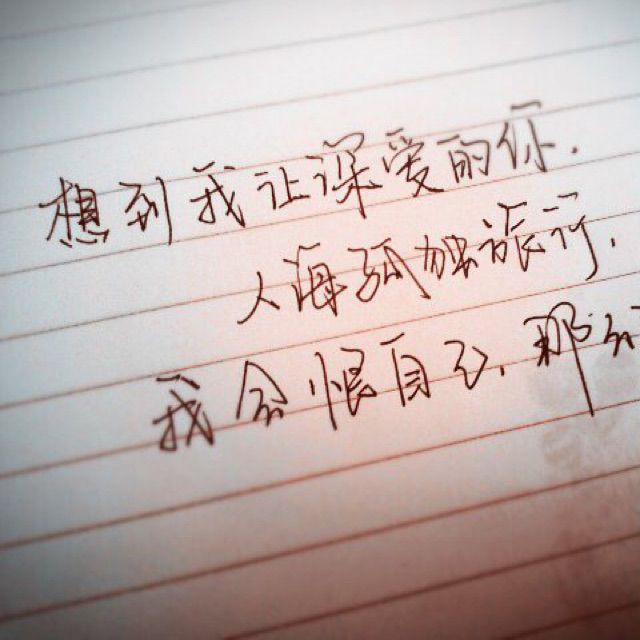 想到我让深爱的你.
人海孤独旅行.
我会恨自己.那